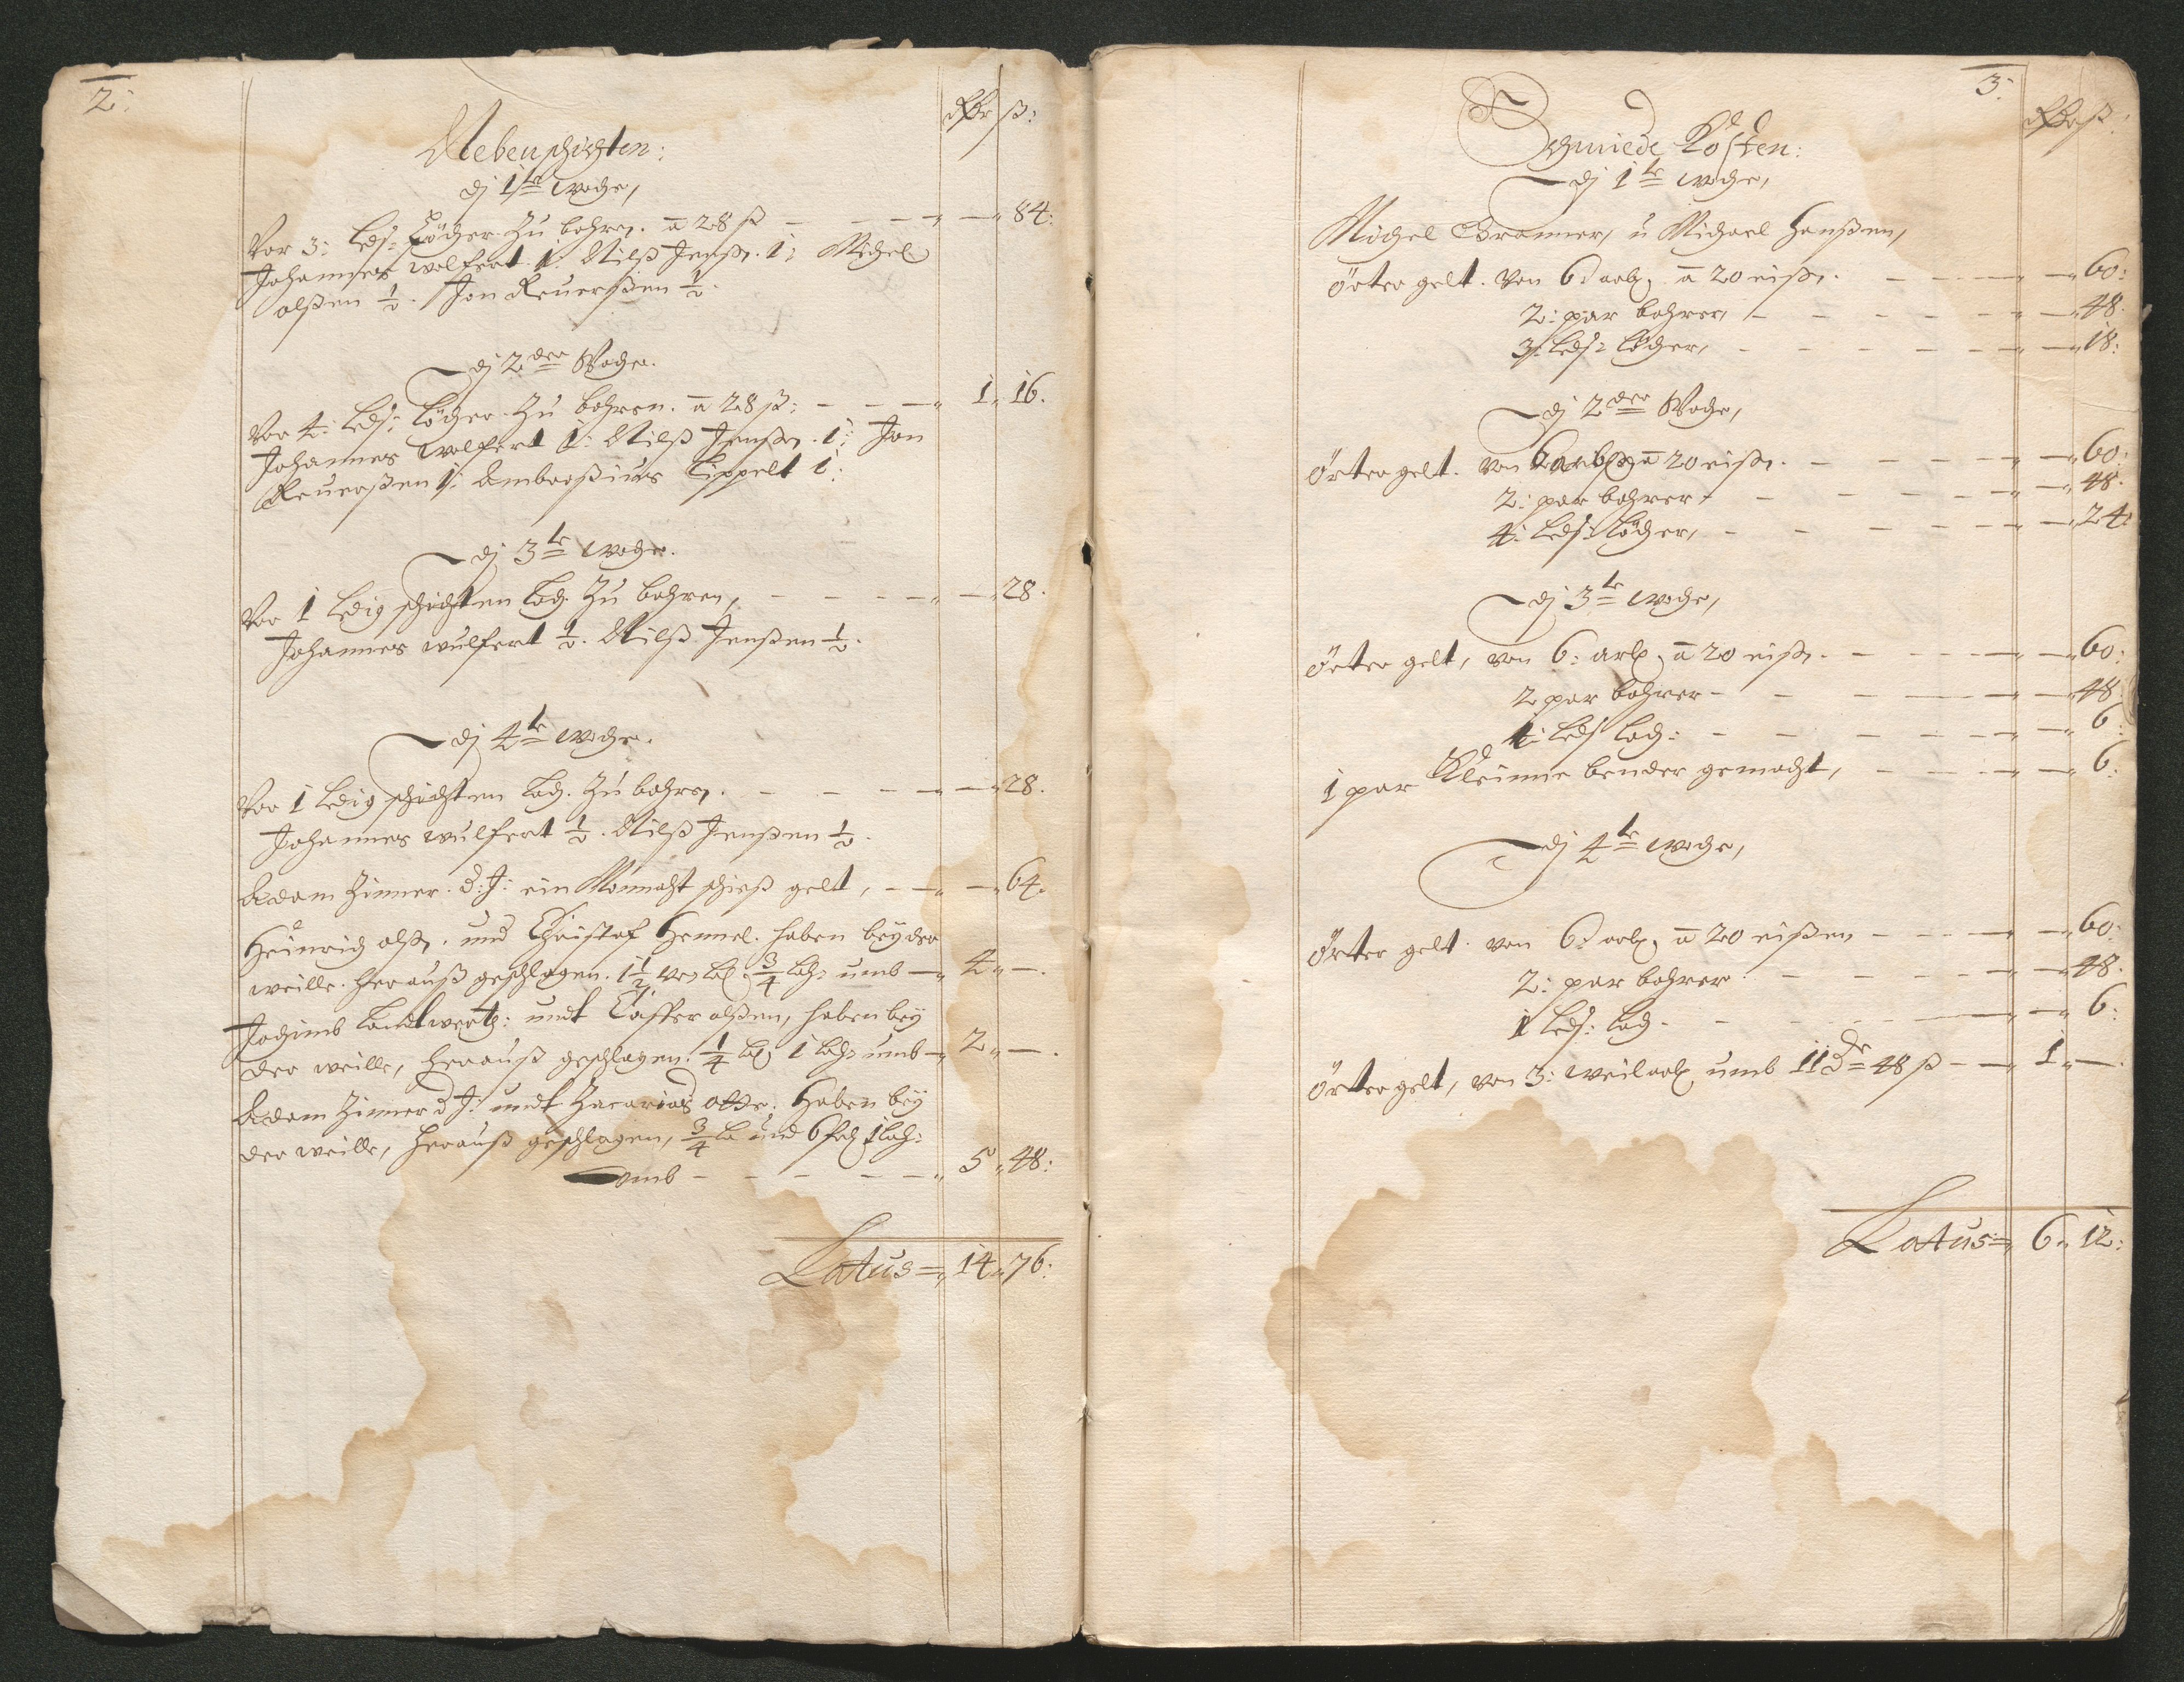 2:
Rdr ß:
Nebenschichten:
dj 1te woche,
Vor 3: leds: Löcher zu bohren. a 28 ß — 84:
Johannes wolfert. 1. Nilß Jenß. 1: Michel
olßen ½. Jon Reuerßen ½.
dj 2der Woche.
Vor 4: leds: Löcher zu bohren. a 28 ß: — 1 „ 16.
Johannes wolfert 1: Nilß Jenß. 1: Jon
Reuerßen 1: Ambroßius Tippelt 1:
dj 3te woche.
Vor 1 ledig schichten loch zu bohren, — 28.
Johannes wulfert ½. Nilß Jenßen ½.
dj 4te woche.
Vor 1 ledig schichten loch. zu bohren. — 28.
Johannes wulfert ½. Nilß Jenßen ½.
Adam Zimer. d: J: ein Monnaht schieß gelt, — 64.
Heinrich olß. und Christof Hemel. haben bey der
weille. herauß geschlagen. 1½ ¾ lach: umb — 4 „ —.
Jochimb Landtwertz: undt Casper olßen, haben bey
der weille, herauß geschlagen. ¼ 1 lach: umb — 2 „ —.
Adam Zimer d J: undt Zacarias otte. Haben bey
der weille, herauß geschlagen, ¾ la und 6 1 lach:
umb — 5 „ 48:
Latus = 14 „ 76:
3:
Rdr ß:
Schmiede Kosten:
dj 1te woche,
Michel Bronner, u Michael Hanßen,
örter gelt. von 6: arb, a 20 eiß. — 60:
2: par bohrer, — 48.
3: leds: löcher, — 18:
dj 2der Woche,
örter gelt. von 6 arb, a 20 eiß. — 60:
2: par bohrer — 48.
4: leds: löcher, — 24:
dj 3te woche,
örter gelt, von 6: arb, a 20 eiß. — 60:
2 par bohrer — 48
1: leds loch: — 6:
1 par Kleinne bender gemacht, — 6:
dj 4te woche,
örter gelt. von 6: arb, a 20 eißen — 60:
2: par bohrer — 48.
1 leds: loch. — 6:
örter gelt, von 3: weil arb umb 48 ß — 1 „ —.
Latus = 6 „ 12: